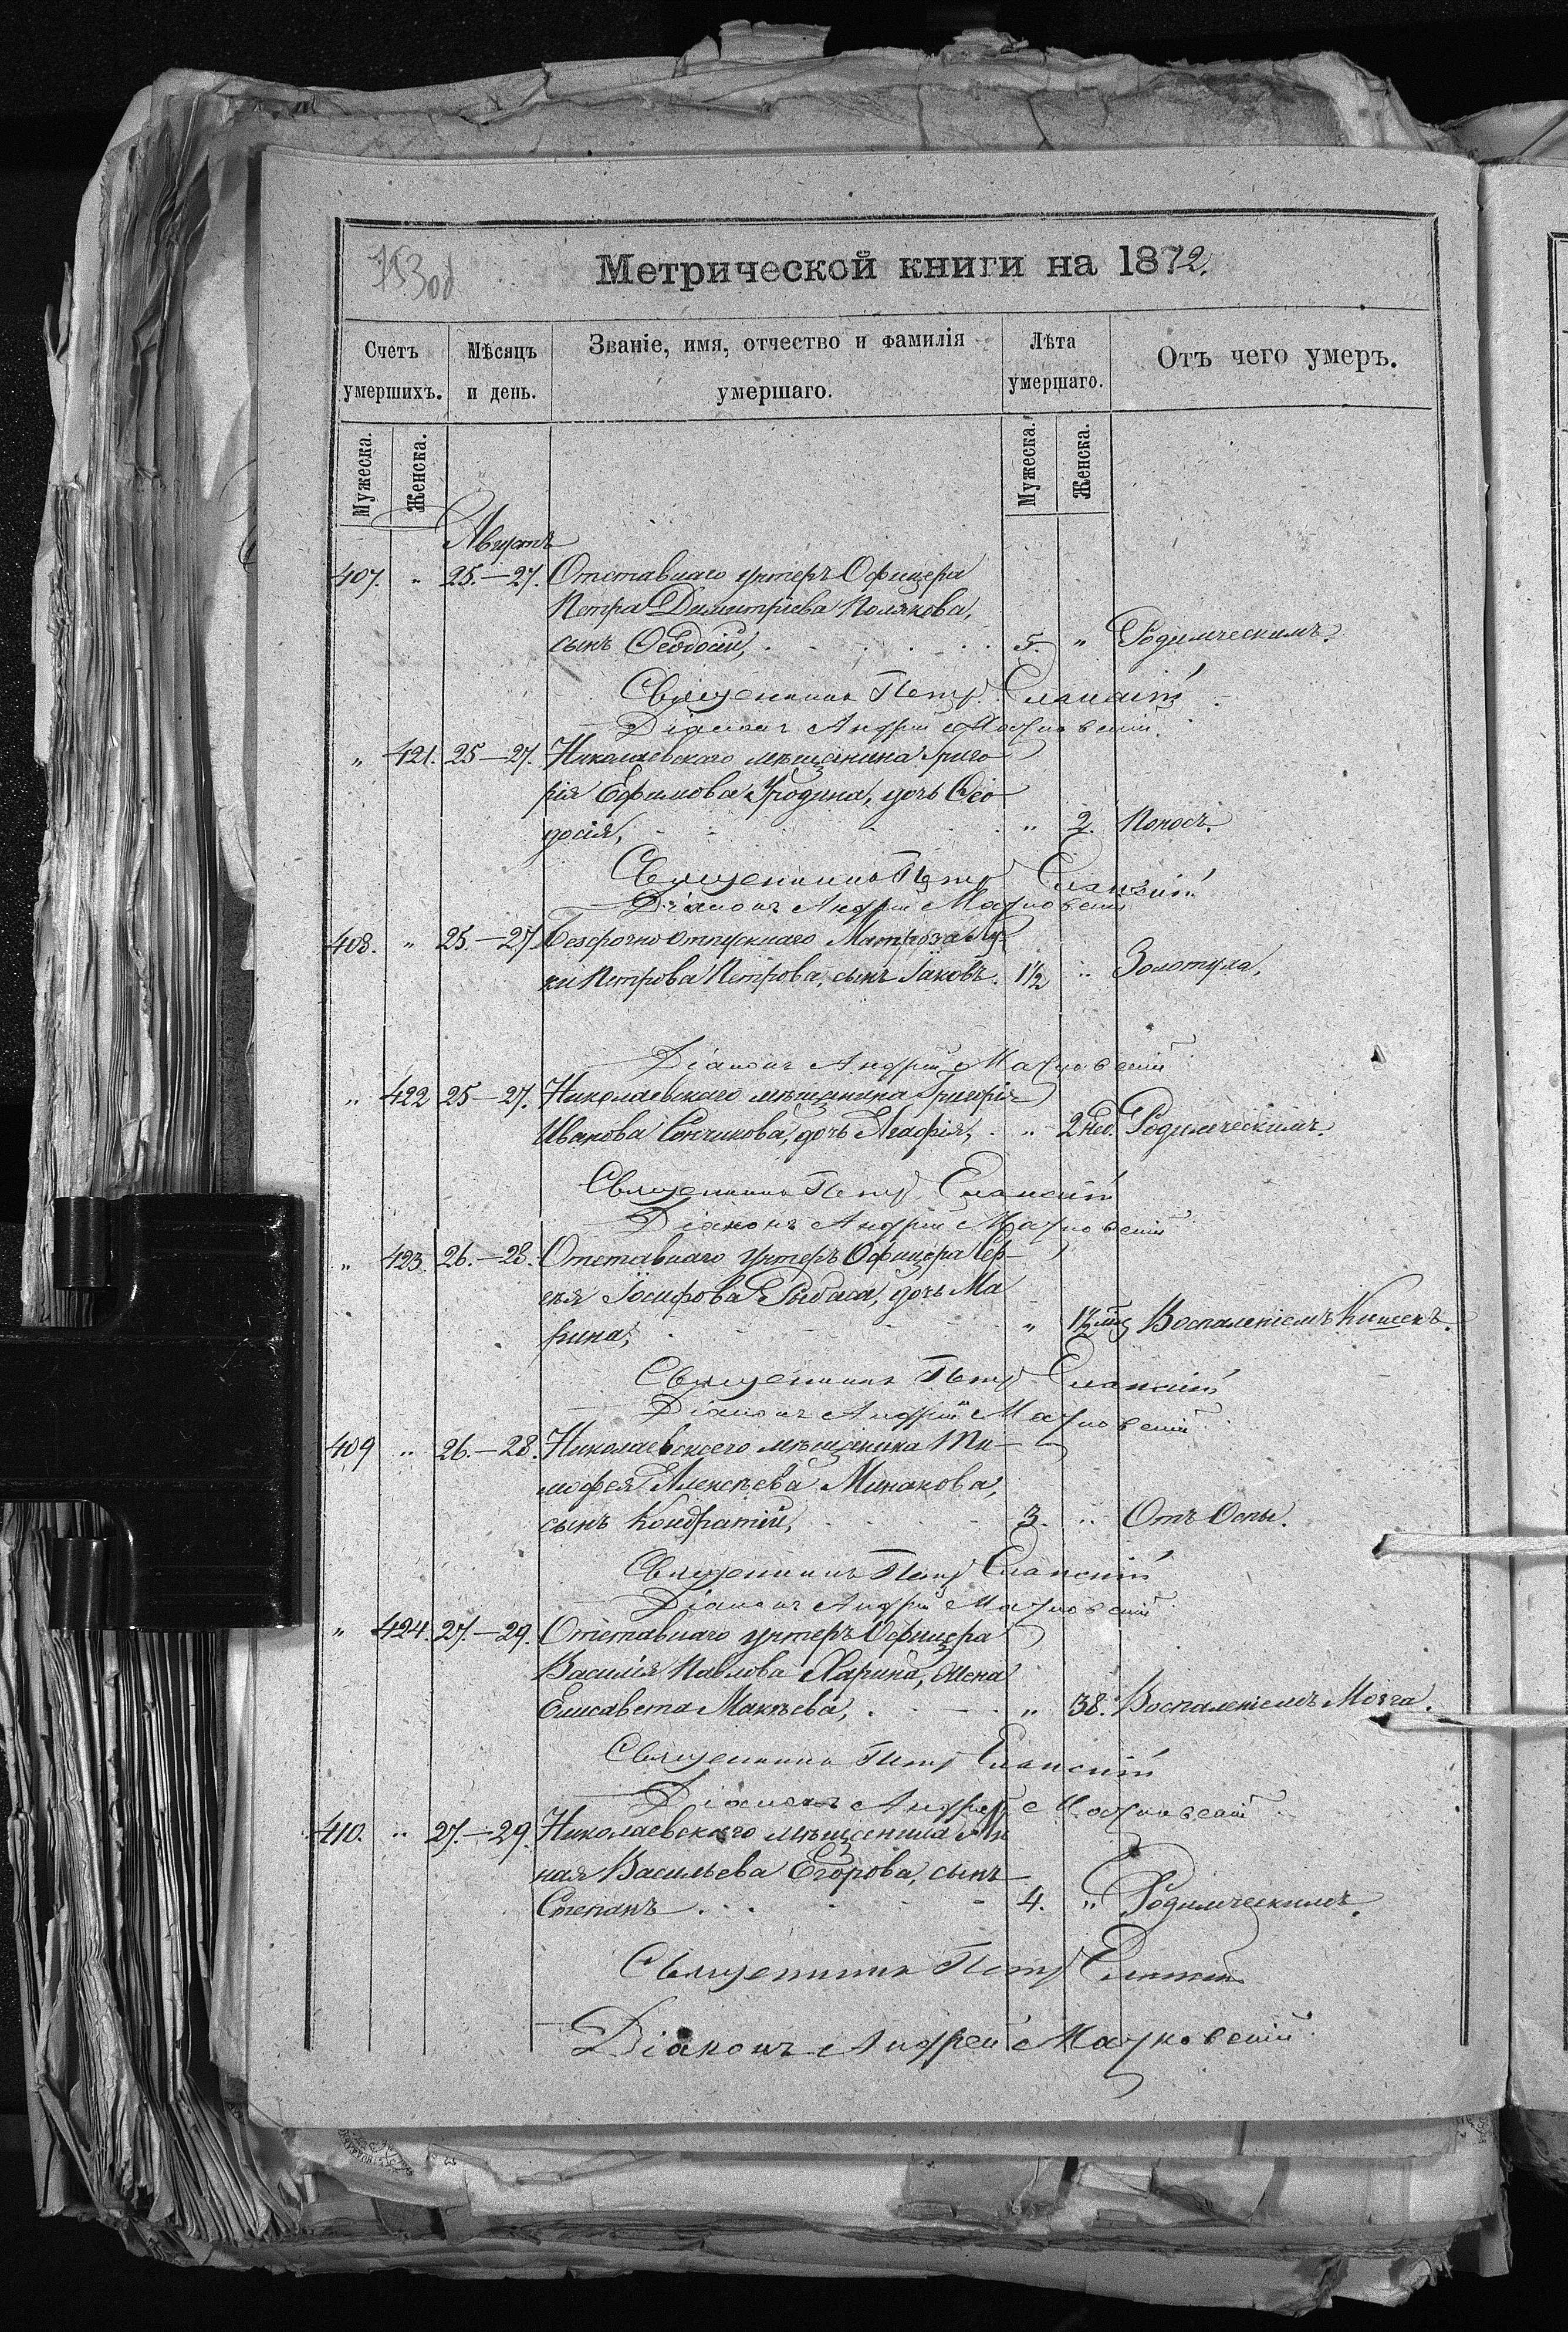 Метрической книги на 1872.
Счетъ умершихъ. Мѣсяцъ и день. Званіе, имя, отчество и фамилія умершаго. Лѣта умершаго. Отъ чего умеръ.
Мужеска. Женска. Мужеска. Женска.
Августъ
407. " 25.-27. Отставнаго унтеръ Офицера
Петра Димитріева Полякова,
сынъ Ѳеодосій, 5. " Родимческимъ.
Священникъ Петръ Еланскій
Діаконъ Андрей
" 421. 25-27. Николаевскаго мѣщанина Григо-
рія Ефимова Уродина, дочь Ѳео-
досія, " 2. Поносъ.
Священникъ Петръ Еланскій
Діаконъ Андрей
408. " 25.-27. Безсрочно отпускнаго Матроза Лу-
ки Петрова Петрова, сынъ Іаковъ. 1½ " Золотуха,
Діаконъ Андрей
" 422 25-27. Николаевскаго мѣщанина Григорія
Иванова дочь Агафія, " 2 нед. Родимческимъ.
Священникъ Петръ Еланскій
Діаконъ Андрей
" 423. 26.-28. Отставнаго унтеръ Офицера Сер-
гѣя Іосифова Рыбаса, дочь Ма
рина, " 1½ мѣс Воспаленіемъ Кишекъ.
Священникъ Петръ Еланскій
Діаконъ Андрей
409 " 26.-28. Николаевскаго мѣщанина Ти-
мофея Алексѣева Минакова,
сынъ Кондратій, 3. " Отъ Оспы.
Священникъ Петръ Еланскій
Діаконъ Андрей
" 424. 27.-29. Отставнаго унтеръ Офицера
Василія Павлова Харина, жена
Елисавета Макѣева, " 38. Воспаленіемъ Мозга.
Священникъ Петръ Еланскій
Діаконъ Андрей
410. " 27.-29. Николаевскаго мѣщанина Ми
ная Васильева Егорова, сынъ
Степанъ 4. " Родимческимъ.
Священникъ Петръ Еланскій
Діаконъ Андрей